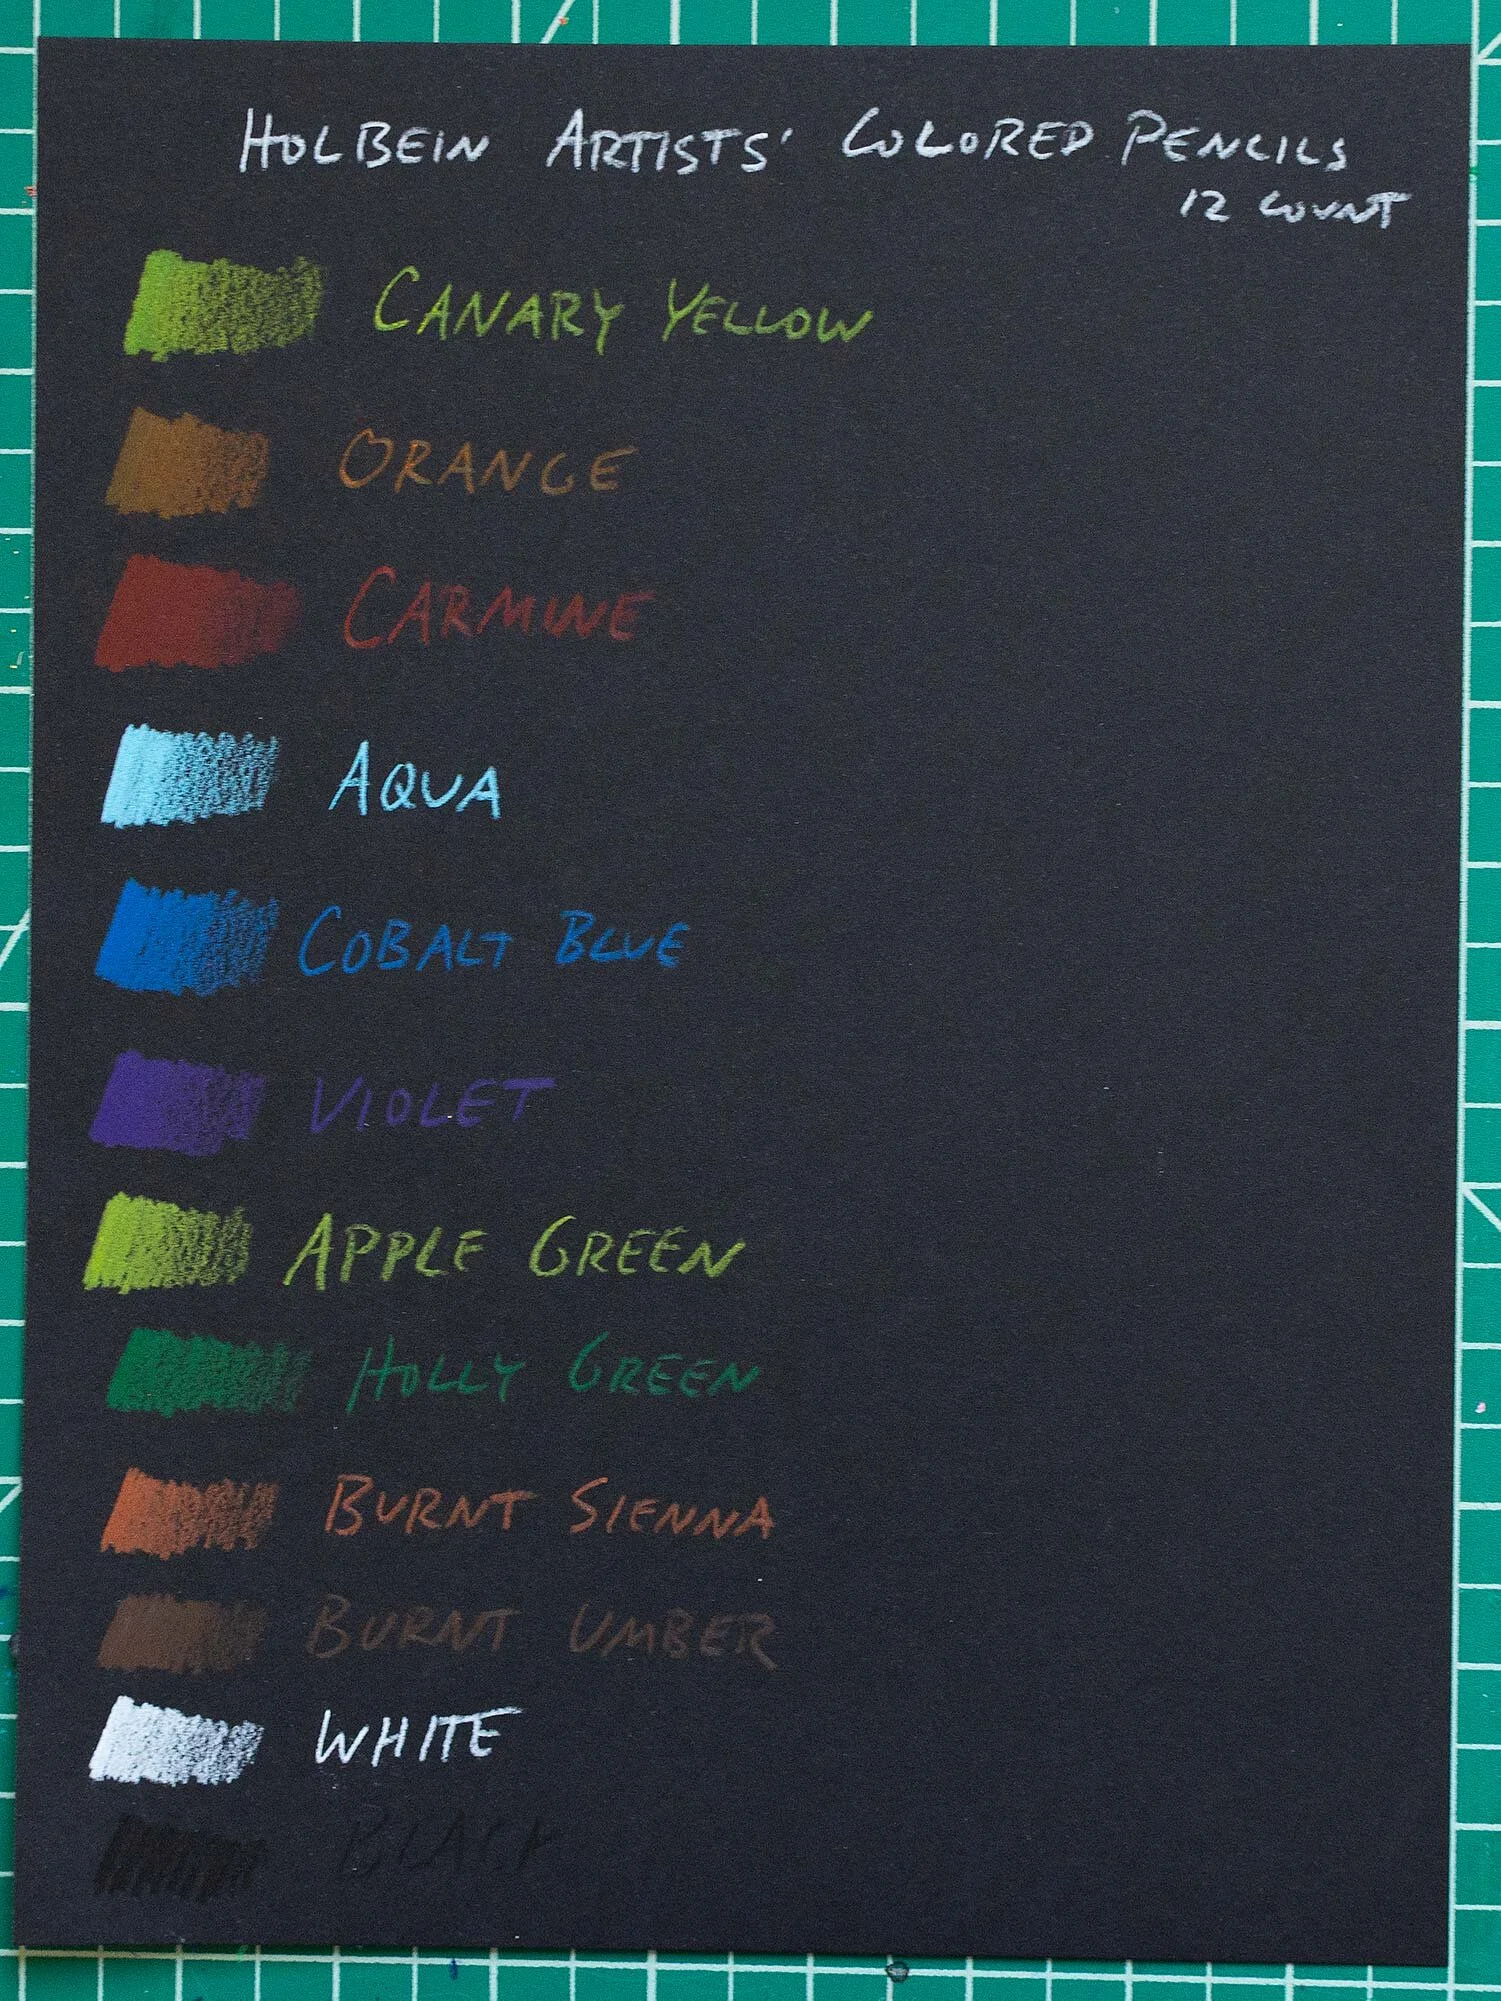 HOLBEIN ARTISTS' COLORED PENCILS
12 COUNT
CANARY YELLOW
ORANGE
CARMINE
AQUA
COBALT BLUE
VIOLET
APPLE GREEN
HOLLY GREEN
BURNT SIENNA
BURNT UMBER
WHITE
BLACK